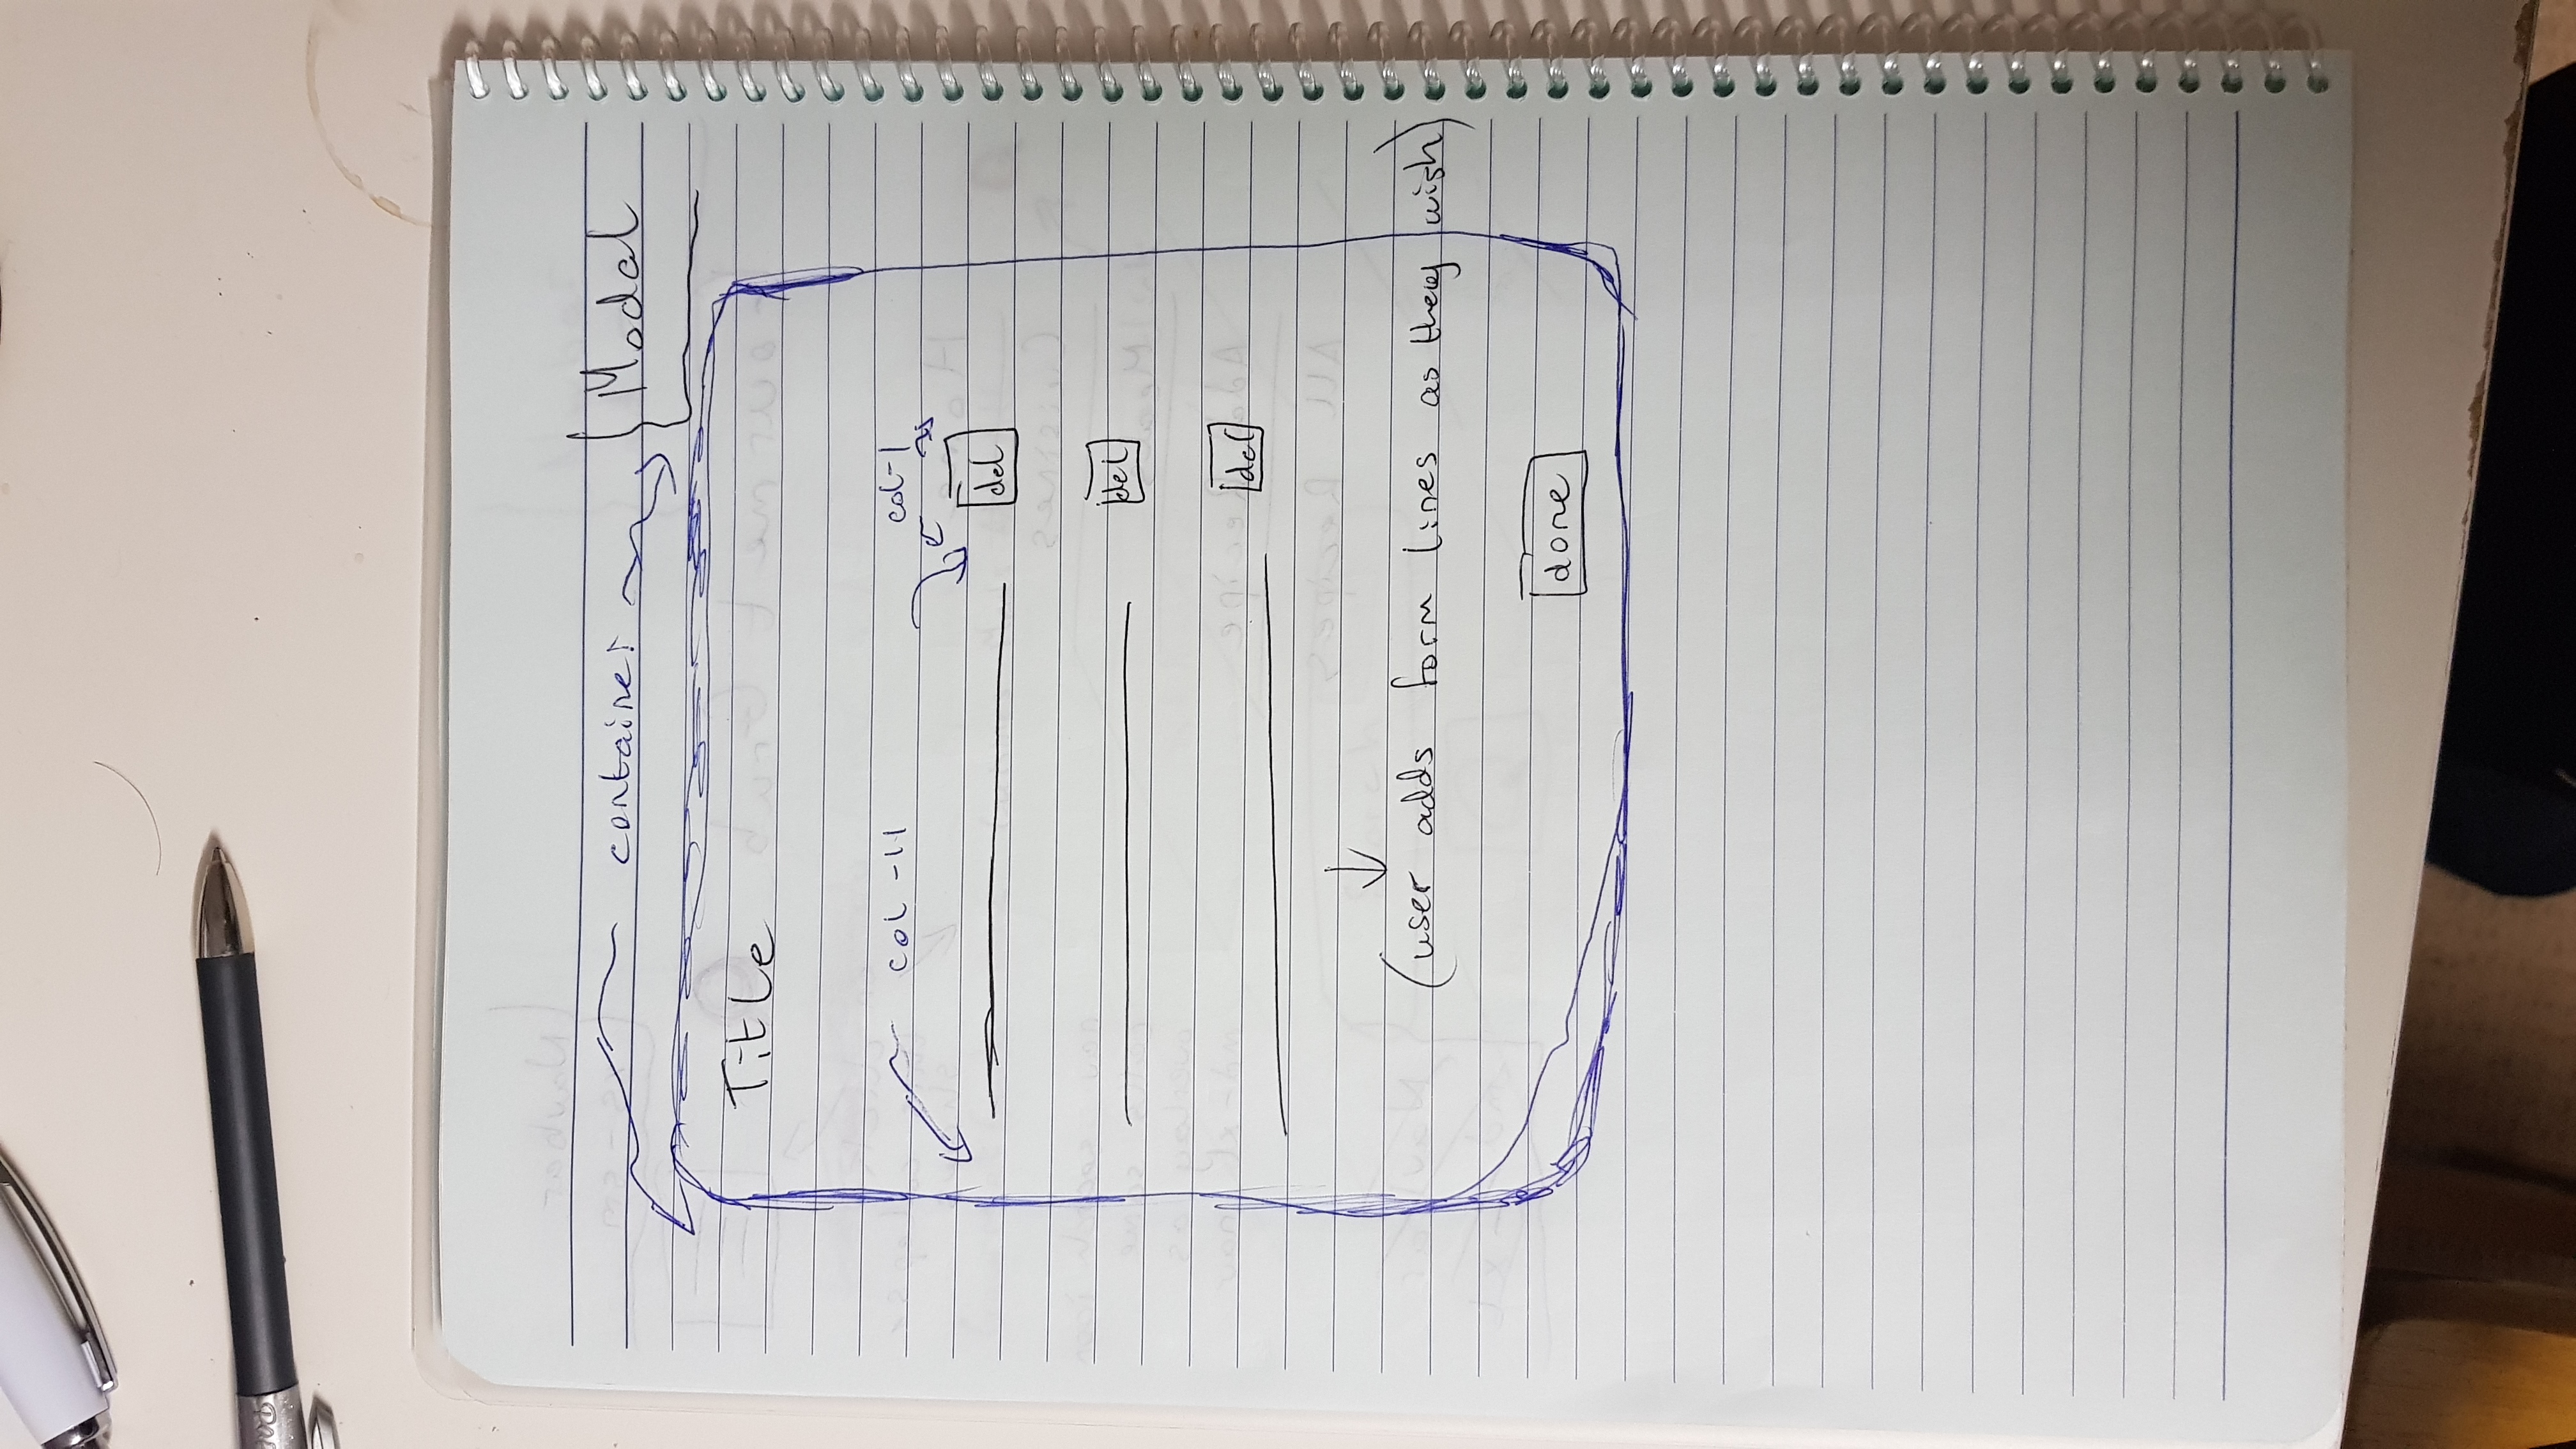 container
Modal
Title
col-11
col-1
del
del
del
(user adds form lines as they wish)
done